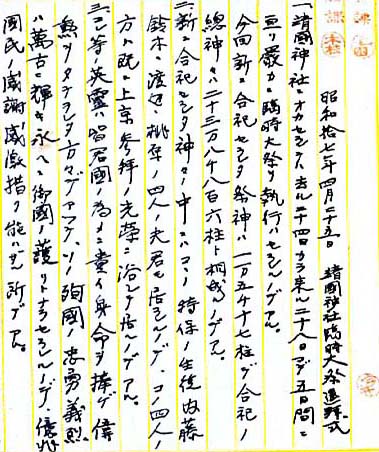 昭和拾七年四月二十五日 靖國神社臨時大祭遙拜式
一、靖國神社ニオカセラレテハ去ル二十四日カラ来ル二十八日マデ五日間ニ
亘リ嚴カニ臨時大祭ヲ執行ハセラレルノデアル。
今回新ニ合祀セラレタ祭神ハ一万五千十七柱デ合祀ノ
總神ハ二十三万八千八百六柱ト相成ルノデアル。
二、新ニ合祀セラレタ神々ノ中ニハコノ特保ノ生徒内藤
鈴木、渡辺、桃季ノ四人ノ父君モ居ラレルノデ、コノ四人ノ
方ハ既ニ上京参拜ノ光栄ニ浴シテ居ルノデアル。
三、己等ノ英靈ハ皆君國ノ為メニ貴イ身命ヲ捧ゲ偉
勲ヲタテラレタ方々デアツテ、ソノ殉國ノ忠勇義烈
ハ万古ニ輝キ永ヘニ御國ノ護リトナラセラレルノデ、億兆
國民ノ感謝感激措ク能ハザル所デアル。